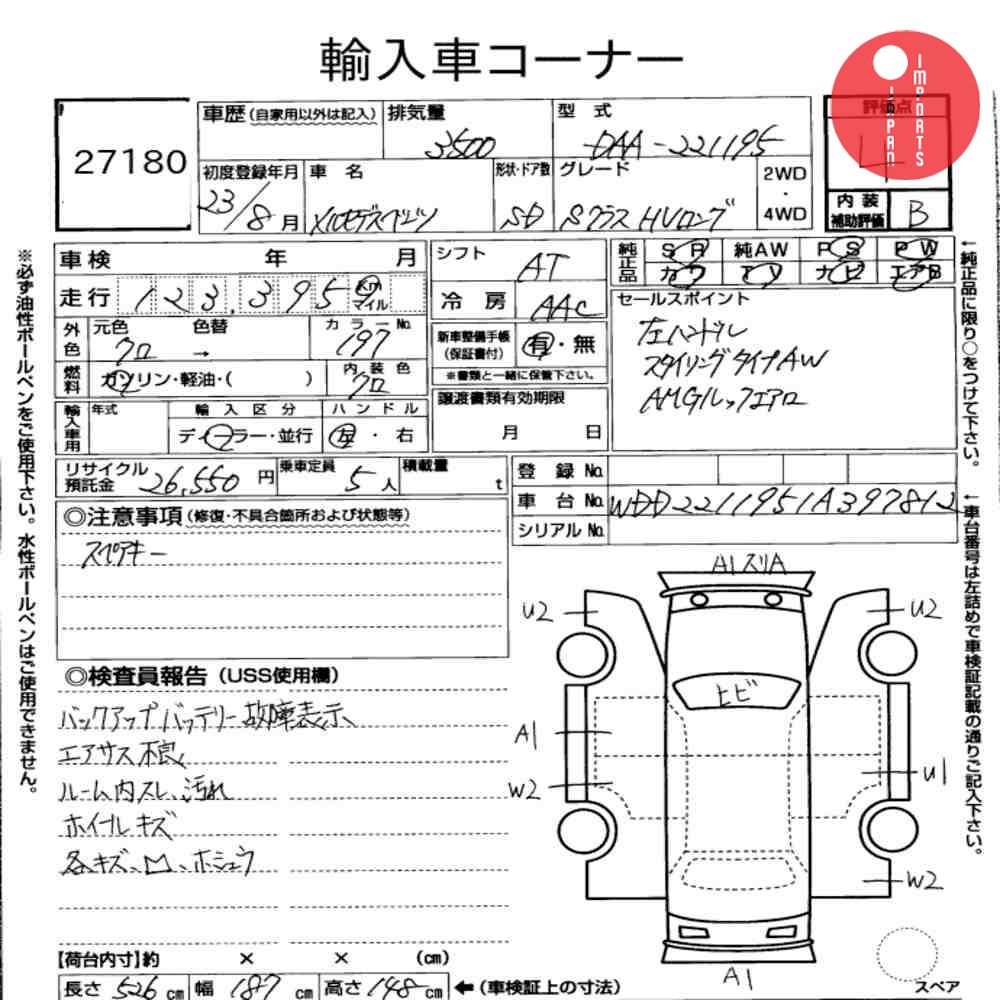 輸入車コーナー
IMPORTS
JAPAN
27180
車歴 (自家用以外は記入)
排気量
3500
型 式
DAA-221195
評価点
4
初度登録年月
23/8月
車 名
メルセデスベンツ
形状・ドア数
SD
グレード
Sクラス HVロング
2WD
・
4WD
内 装
補助評価
B
車 検 年 月
シフト
AT
純正品
S R 純AW P S P W
カワ T V ナビ エアB
走 行 123,395 Km マイル
冷 房 AAC
セールスポイント
左ハンドル
スタイリングタイプAW
AMGルックエアロ
外色
元色 色替
クロ →
カラーNo.
197
新車整備手帳
(保証書付)
有・無
※書類と一緒に保管下さい。
燃料
ガソリン・軽油・( )
内 装 色
クロ
譲渡書類有効期限
月 日
輸入車用
年式
輸 入 区 分
ディーラー・並行
ハ ン ド ル
左・右
リサイクル
預託金
26,550 円
乗車定員
5 人
積載量
t
登 録 No.
車 台 No. WDD2211951A397812
シリアル No.
◎注意事項 (修復・不具合箇所および状態等)
スペアキー
◎検査員報告 (USS使用欄)
バックアップバッテリー故障表示、
エアサス不良、
ルーム内スレ、汚れ
ホイールキズ
各キズ、凹、ホシュウ
A1スリA
U2
U2
ヒビ
A1
W2
U1
W2
A1
スペア
【荷台内寸】約 × × (cm)
長さ 526 cm 幅 187 cm 高さ 148 cm ←(車検証上の寸法)
※必ず油性ボールペンをご使用下さい。水性ボールペンはご使用できません。
←純正品に限り○をつけて下さい。
←車台番号は左詰めで車検証記載の通りご記入下さい。